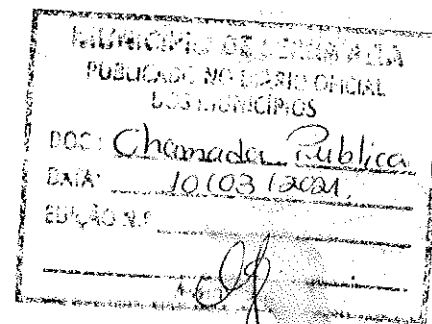 MUNICÍPIO DE SERRA ALTA
PUBLICADO NO DIÁRIO OFICIAL
DOS MUNICÍPIOS
DOC: Chamada Publica
DATA: 10/03/2021.
EDIÇÃO N.º